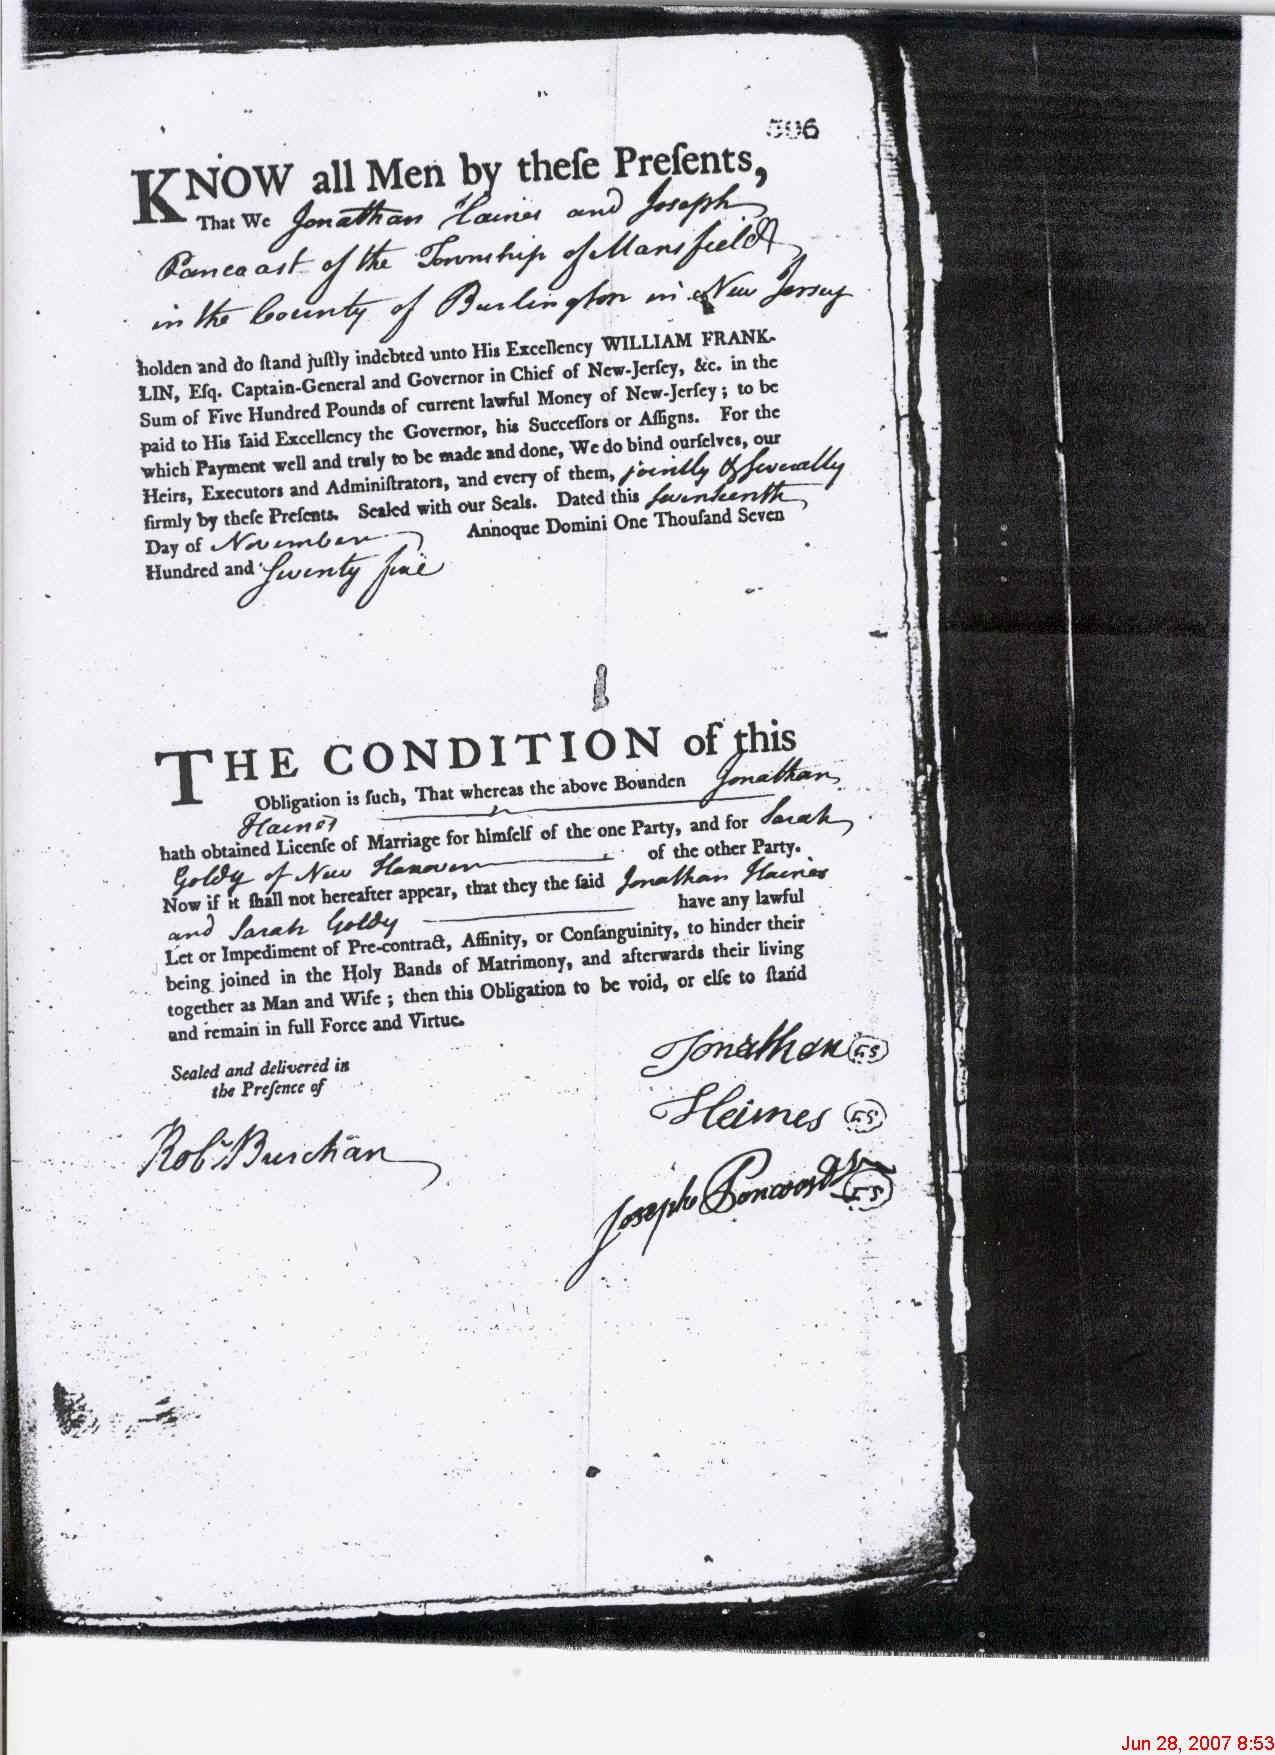 596
KNOW all Men by theſe Preſents,
That We Jonathan Haines and Joseph
Pancoast of the Township of Mansfield
in the County of Burlington in New Jersey
holden and do ſtand juſtly indebted unto His Excellency WILLIAM FRANK-
LIN, Eſq. Captain-General and Governor in Chief of New-Jerſey, &c. in the
Sum of Five Hundred Pounds of current lawful Money of New-Jerſey; to be
paid to His ſaid Excellency the Governor, his Succeſſors or Aſſigns. For the
which Payment well and truly to be made and done, We do bind ourſelves, our
Heirs, Executors and Adminiſtrators, and every of them, jointly & severally
firmly by theſe Preſents. Sealed with our Seals. Dated this Seventeenth
Day of November Annoque Domini One Thouſand Seven
Hundred and Seventy five
THE CONDITION of this
Obligation is ſuch, That whereas the above Bounden Jonathan
Haines
hath obtained Licenſe of Marriage for himſelf of the one Party, and for Sarah
Goldy of New Hanover of the other Party.
Now if it ſhall not hereafter appear, that they the ſaid Jonathan Haines
and Sarah Goldy have any lawful
Let or Impediment of Pre-contract, Affinity, or Conſanguinity, to hinder their
being joined in the Holy Bands of Matrimony, and afterwards their living
together as Man and Wife; then this Obligation to be void, or elſe to ſtand
and remain in full Force and Virtue.
Sealed and delivered in
the Preſence of
Jonathan LS
Heimes LS
Robt Burchan
Joseph Pancoast LS
Jun 28, 2007 8:53